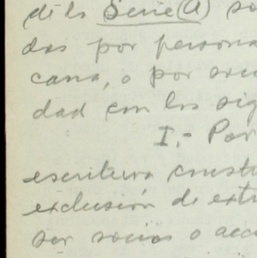 de la Serie (A) so
das por persona
cana, o por soci
dad con los sig
I.- Por
escritura consti
exclusión de ext
ser socios o acc